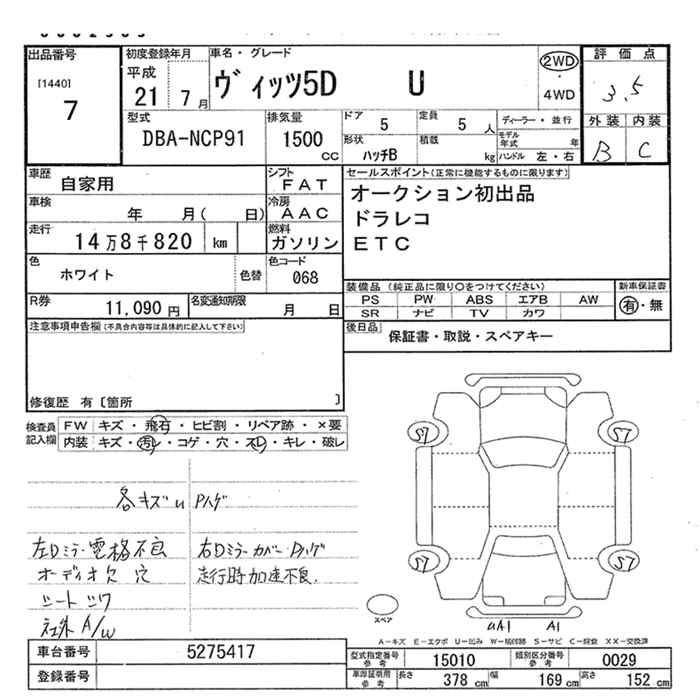 出品番号 初度登録年月 車名・グレード 2WD 評価点
[1440] 平成 ヴィッツ5D U ・ 3.5
7 21 7月 4WD
外装 内装
B C
型式 排気量 ドア 定員 ディーラー・並行
DBA-NCP91 1500 CC 5 5 人 モデル年式 年
形状 積載
ハッチB kg ハンドル 左・右
車歴 自家用 シフト FAT セールスポイント(正常に機能するものに限ります)
車検 年 月( 日) 冷房 AAC オークション初出品
走行 14万8千820 km 燃料 ガソリン ドラレコ
ETC
色 ホワイト 色替 色コード 068
装備品 (純正品に限り〇をつけてください) 新車保証書
PS PW ABS エアB AW 有・無
SR ナビ TV カワ
R券 11,090円 名変通知期限 月 日
後日品 保証書・取説・スペアキー
注意事項申告欄(不具合内容等は具体的に記入して下さい)
修復歴 有〔箇所 〕
検査員記入欄 FW キズ・飛石・ヒビ割・リペア跡・×要
内装 キズ・汚レ・コゲ・穴・スレ・キレ・破レ
S7 S7
各キズU Pハゲ
左Dミラー電格不良 右DミラーカバーPハゲ
オーディオ欠 穴 走行時加速不良.
シート シワ
社外 A/W
S7 S7
スペア
UA1 A1
A-キズ E-エクボ U-凹み W-補修跡 S-サビ C-腐食 XX-交換済
車台番号 5275417
登録番号
型式指定番号参考 15010 類別区分番号参考 0029
車庫証明用参考 長さ 378 cm 幅 169 cm 高さ 152 cm